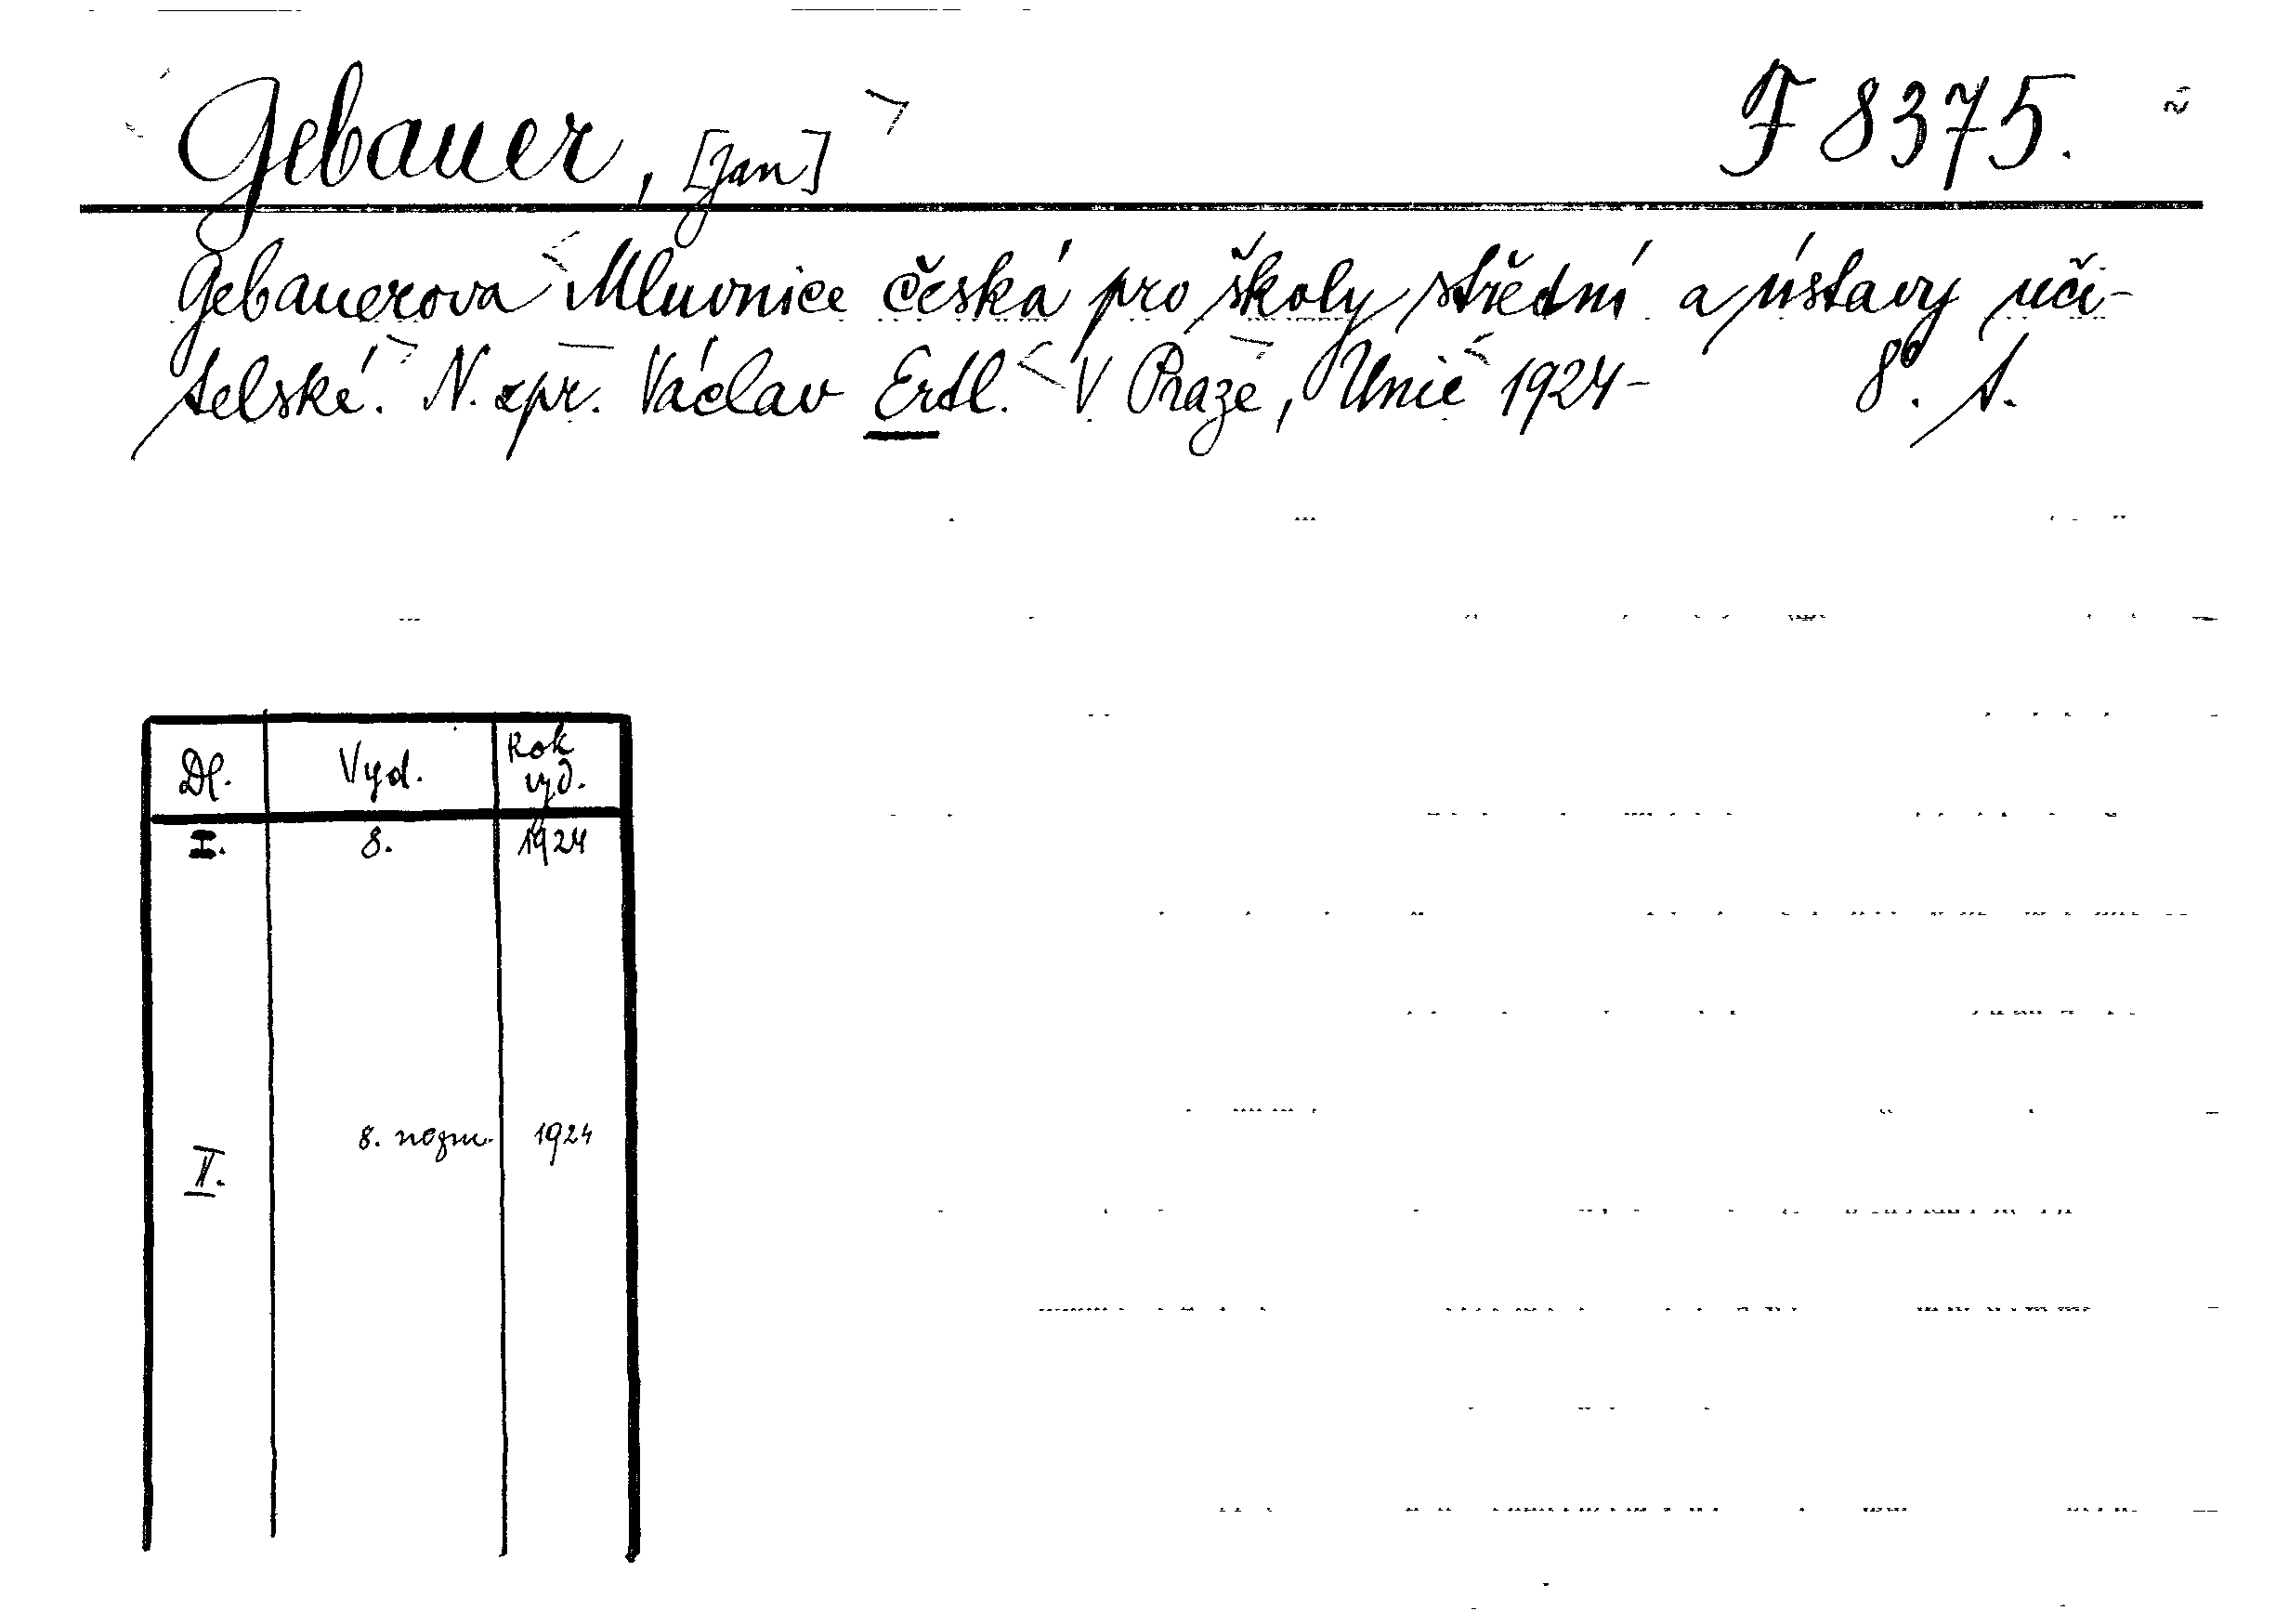 Gebauer, [Jan]
F 8375.
Gebauerova Mluvnice česká pro školy střední a ústavy uči-
telské. N. zpr. Václav Ertl. V Praze, Unie 1924-
8°. S.
Dl. Vyd. Rok vyd.
I. 8. 1924
II. 8. nezm. 1924